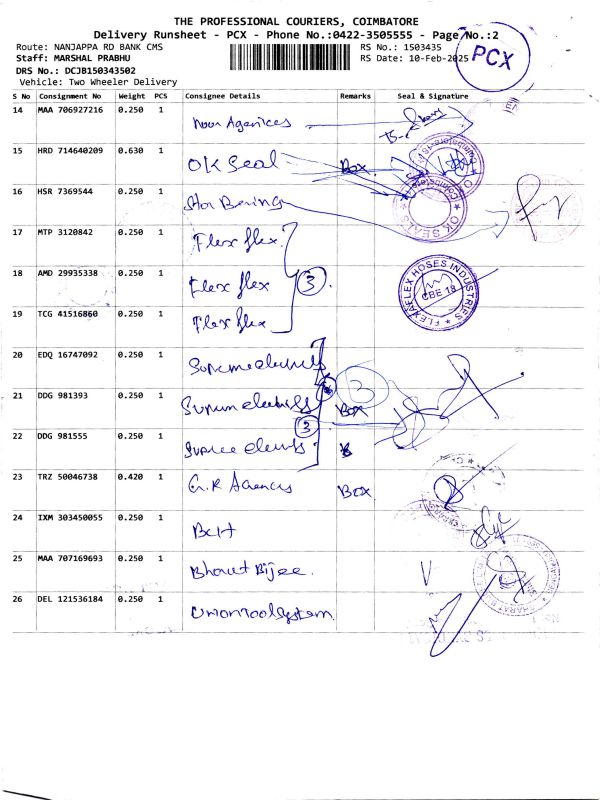 THE PROFESSIONAL COURIERS, COIMBATORE
Delivery Runsheet - PCX - Phone No.:0422-3505555 - Page No.:2
Route: NANJAPPA RD BANK CMS
RS No.: 1503435
Staff: MARSHAL PRABHU
RS Date: 10-Feb-2025
PCX
DRS No.: DCJB150343502
Vehicle: Two Wheeler Delivery
S No Consignment No Weight PCS Consignee Details Remarks Seal & Signature
14 MAA 706927216 0.250 1 Noor Agenices
15 HRD 714640209 0.630 1 OK Seal Box
16 HSR 7369544 0.250 1 Star Bering
OK SEALS
17 MTP 3120842 0.250 1 Flex flex
18 AMD 29935338 0.250 1 Flex flex 3
FLEXAFLEX HOSES INDUSTRIES
CBE 18
19 TCG 41516860 0.250 1 Flex flex
20 EDQ 16747092 0.250 1
21 DDG 981393 0.250 1 Box
3
22 DDG 981555 0.250 1 3
23 TRZ 50046738 0.420 1 G.R Agencies Box
24 IXM 303450055 0.250 1
25 MAA 707169693 0.250 1 Bharat Bijee.
26 DEL 121536184 0.250 1